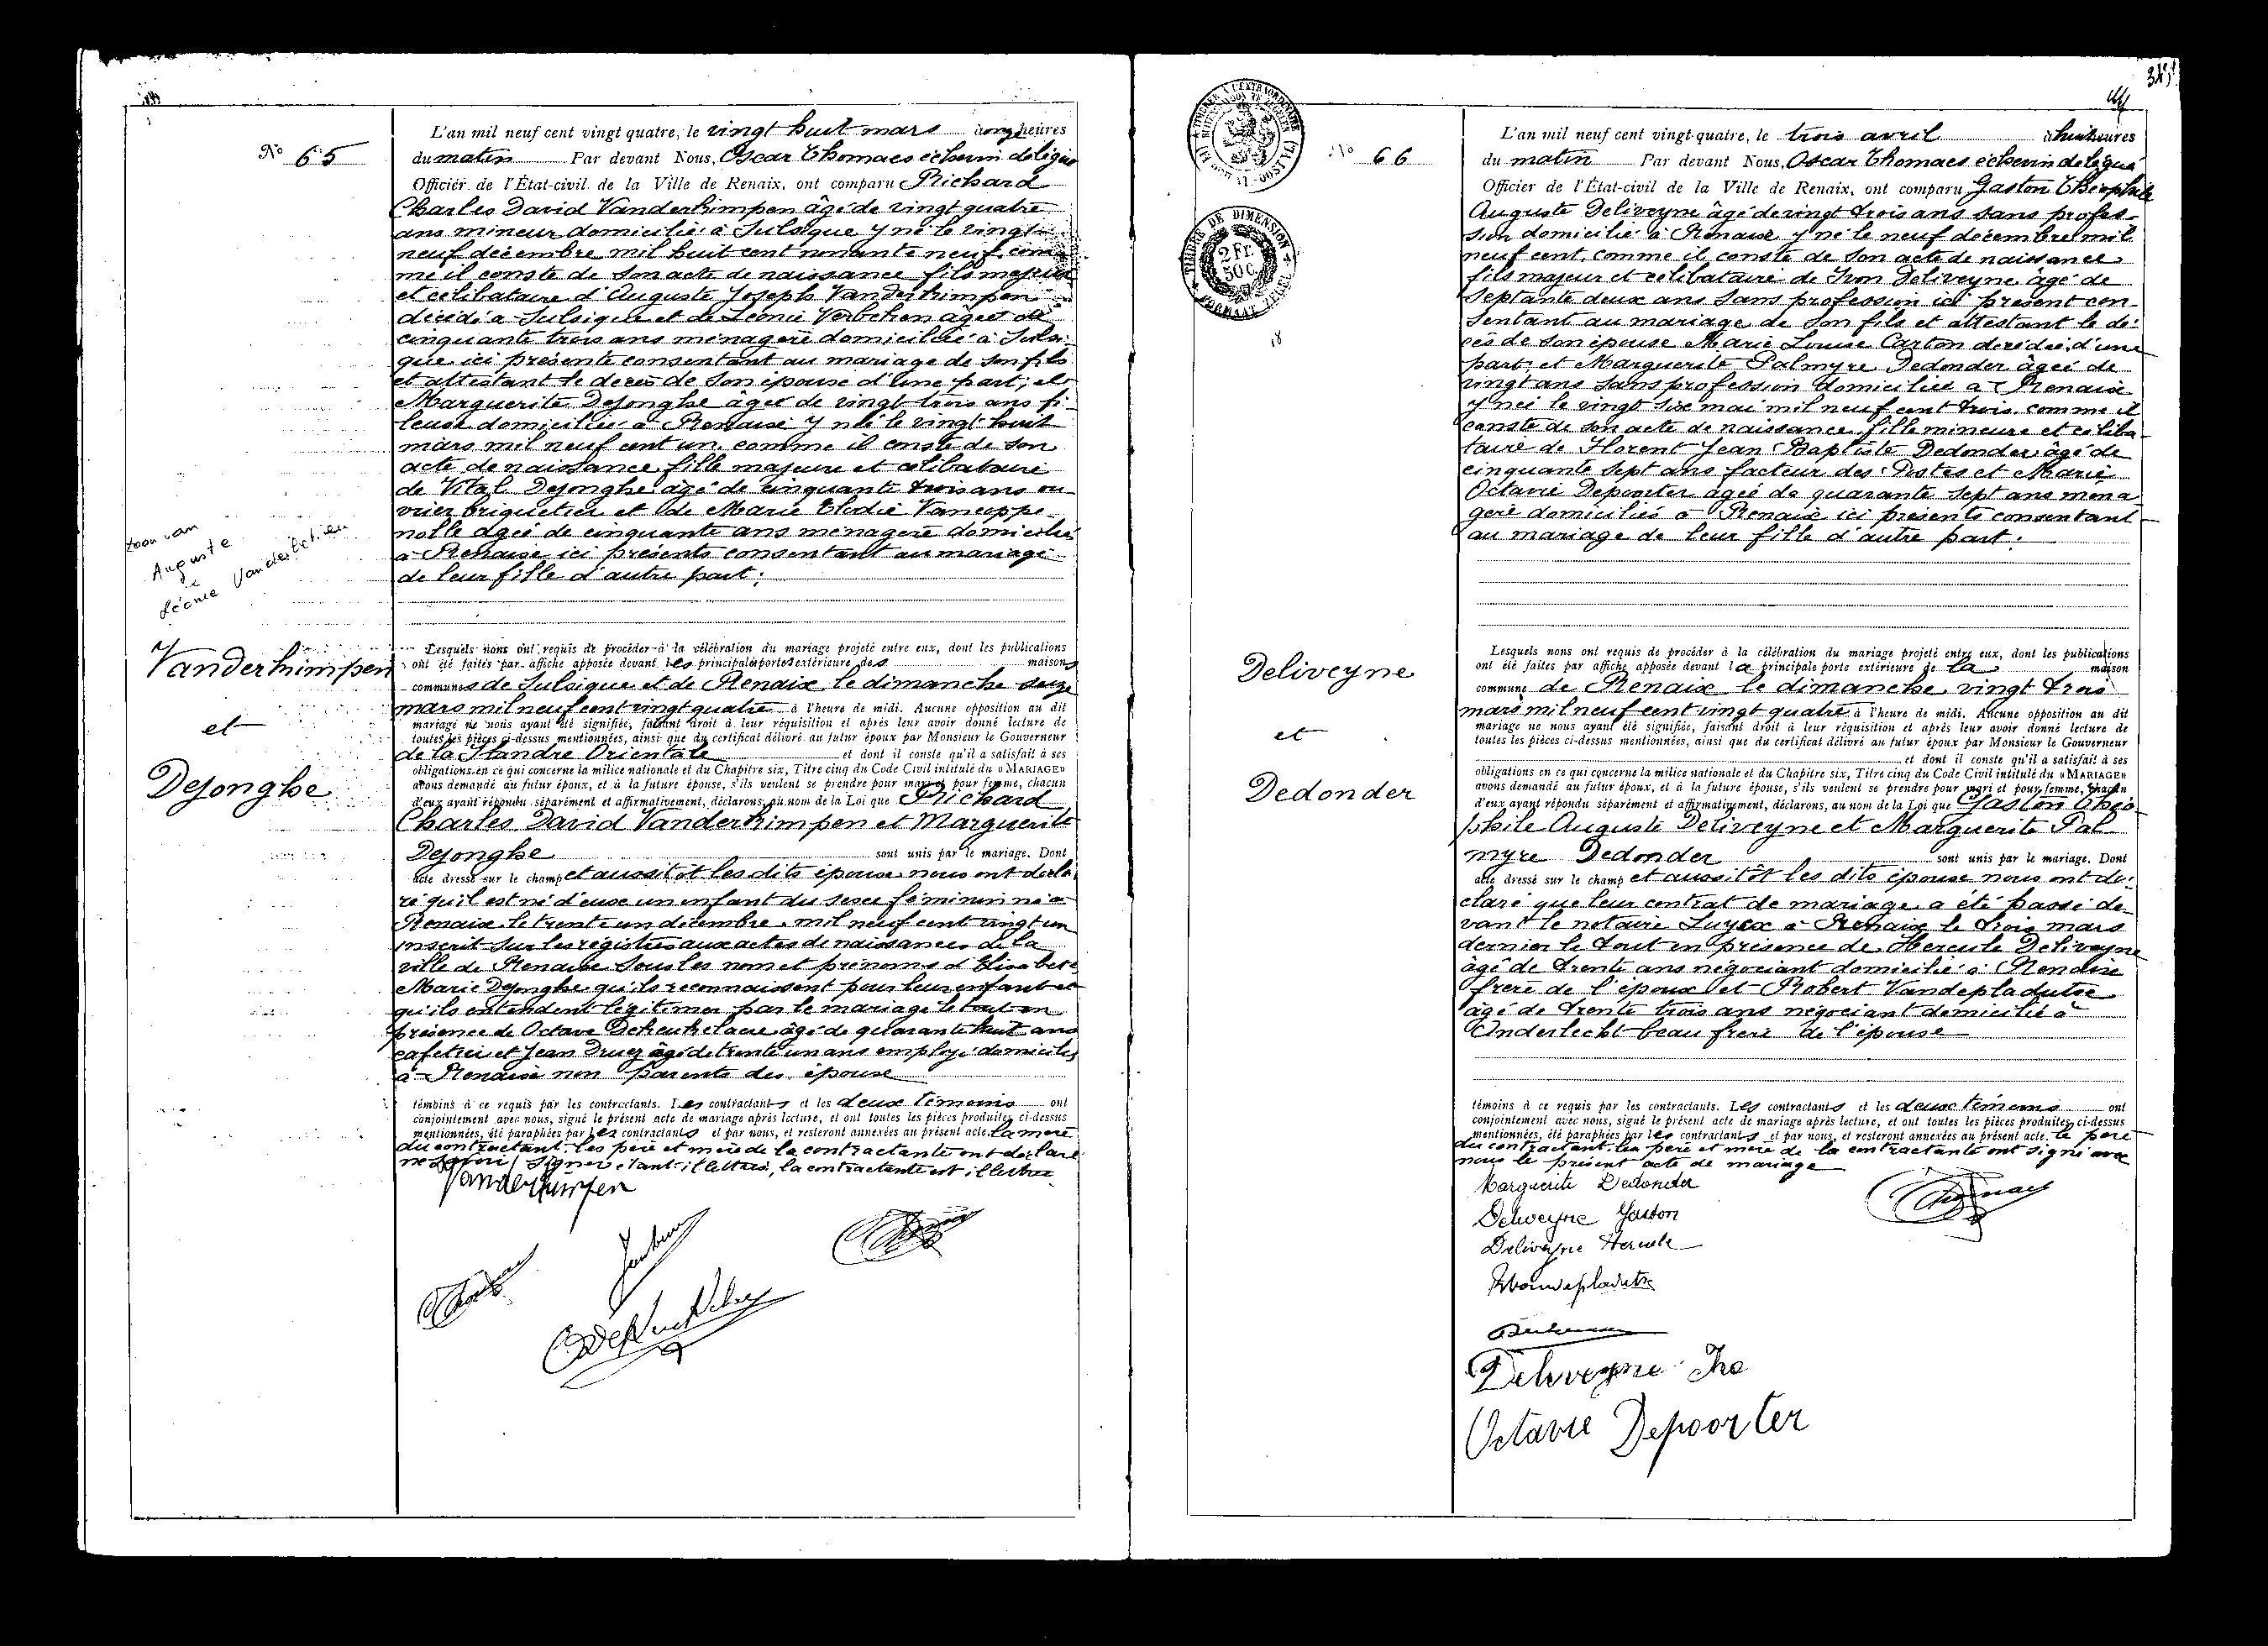 Nº 65
L'an mil neuf cent vingt quatre, le vingt huit mars à onze heures
du matin Par devant Nous, Oscar Thomaes échevin délégué
Officier de l'État-civil de la Ville de Renaix, ont comparu Richard
Charles David Vanderhimpen âgé de vingt quatre
ans mineur domicilié à Sulsique y né le vingt
neuf décembre mil huit cent nonante neuf, com
me il conste de son acte de naissance fils majeur
et célibataire d'Auguste Joseph Vanderhimpen
décédé à Sulsique et de Léonie Verbetien âgée de
cinquante trois ans ménagère domiciliée à Sulsi
que ici présente consentant au mariage de son fils
et attestant le décès de son épouse d'une part; et
Marguerite Dejonghe âgée de vingt trois ans fi
leuse domiciliée à Renaix y née le vingt huit
mars mil neuf cent un comme il conste de son
acte de naissance fille majeure et célibataire
de Vital Dejonghe âgé de cinquante trois ans ou
vrier briquetier et de Marie Elodie Vancoppe
nolle âgée de cinquante ans ménagère domiciliés
à Renaix ici présents consentant au mariage
de leur fille d'autre part;
zoon van
Auguste
&
Léonie Vanderbetien
Vanderhimpen
et
Dejonghe
Lesquels nous ont requis de procéder à la célébration du mariage projeté entre eux, dont les publications
ont été faites par affiche apposée devant les principales portes extérieure des maisons
communes de Sulsique et de Renaix le dimanche seize
mars mil neuf cent vingt quatre à l'heure de midi. Aucune opposition au dit
mariage ne nous ayant été signifiée, faisant droit à leur réquisition et après leur avoir donné lecture de
toutes les pièces ci-dessus mentionnées, ainsi que du certificat délivré au futur époux par Monsieur le Gouverneur
de la Flandre Orientale et dont il conste qu'il a satisfait à ses
obligations en ce qui concerne la milice nationale et du Chapitre six, Titre cinq du Code Civil intitulé du «MARIAGE»
avons demandé au futur époux, et à la future épouse, s'ils veulent se prendre pour mari et pour femme, chacun
d'eux ayant répondu séparément et affirmativement, déclarons, au nom de la Loi que Richard
Charles David Vanderhimpen et Marguerite
Dejonghe sont unis par le mariage. Dont
acte dressé sur le champ et aussitôt les dits époux nous ont décla
ré qu'il est né d'eux un enfant du sexe féminin né à
Renaix le trente un décembre mil neuf cent vingt un
inscrit sur les registres aux actes de naissances de la
ville de Renaix sous les nom et prénoms d'Elisabeth
Marie Dejonghe qu'ils reconnaissent pour leur enfant et
qu'ils entendent légitimer par le mariage le tout en
présence de Octave Dekeukelaere âgé de quarante huit ans
cafetier et Jean Druez âgé de trente un ans employé domiciliés
à Renaix non parents des époux
témoins à ce requis par les contractants. Les contractants et les deux témoins ont
conjointement avec nous, signé le présent acte de mariage après lecture, et ont toutes les pièces produites ci-dessus
mentionnées, été paraphées par les contractants et par nous, et resteront annexées au présent acte. la mère
du contractant les père et mère de la contractante ont déclaré
ne savoir signer étant illettrés, la contractante est illettrée
Vanderhimpen
TIMBRE A L'EXTRAORDINAIRE
TIMBRE DE DIMENSION
2 Fr.
50 c.
FORMAAT ZEGEL
18
Nº 66
L'an mil neuf cent vingt-quatre, le trois avril à huit heures
du matin Par devant Nous, Oscar Thomaes échevin délégué
Officier de l'État-civil de la Ville de Renaix, ont comparu Gaston Théophile
Auguste Deliveyne âgé de vingt trois ans sans profes
sion domicilié à Renaix y né le neuf décembre mil
neuf cent, comme il conste de son acte de naissance
fils majeur et célibataire de Ivon Deliveyne âgé de
septante deux ans sans profession ici présent con
sentant au mariage de son fils et attestant le dé
cès de son épouse Marie Louise Carton décédée, d'une
part; et Marguerite Palmyre Dedonder âgée de
vingt ans sans profession domiciliée à Renaix
y née le vingt six mai mil neuf cent trois comme il
conste de son acte de naissance, fille mineure et céliba
taire de Florent Jean Baptiste Dedonder âgé de
cinquante sept ans facteur des Postes et Marie
Octavie Depoorter âgée de quarante sept ans ména
gère domiciliés à Renaix ici présents consentant
au mariage de leur fille d'autre part:
Deliveyne
et
Dedonder
Lesquels nous ont requis de procéder à la célébration du mariage projeté entre eux, dont les publications
ont été faites par affiche apposée devant la principale porte extérieure de la maison
commune de Renaix le dimanche vingt trois
mars mil neuf cent vingt quatre à l'heure de midi. Aucune opposition au dit
mariage ne nous ayant été signifiée, faisant droit à leur réquisition et après leur avoir donné lecture de
toutes les pièces ci-dessus mentionnées, ainsi que du certificat délivré au futur époux par Monsieur le Gouverneur
et dont il conste qu'il a satisfait à ses
obligations en ce qui concerne la milice nationale et du Chapitre six, Titre cinq du Code Civil intitulé du «MARIAGE»
avons demandé au futur époux, et à la future épouse, s'ils veulent se prendre pour mari et pour femme, chacun
d'eux ayant répondu séparément et affirmativement, déclarons, au nom de la Loi que Gaston Théo
phile Auguste Deliveyne et Marguerite Pal
myre Dedonder sont unis par le mariage. Dont
acte dressé sur le champ et aussitôt les dits époux nous ont dé
claré que leur contrat de mariage a été passé de
vant le notaire Luyex à Renaix le trois mars
dernier le tout en présence de Hercule Deliveyne
âgé de trente ans négociant domicilié à Renaix
frère de l'époux et Robert Vandepladutse
âgé de trente trois ans négociant domicilié à
Anderlecht beau frère de l'épouse
témoins à ce requis par les contractants. Les contractants et les deux témoins ont
conjointement avec nous, signé le présent acte de mariage après lecture, et ont toutes les pièces produites ci-dessus
mentionnées, été paraphées par les contractants et par nous, et resteront annexées au présent acte. le père
du contractant les père et mère de la contractante ont signé avec
nous le présent acte de mariage
Marguerite Dedonder
Deliveyne Gaston
Deliveyne Hercule
Deliveyne
Octavie Depoorter